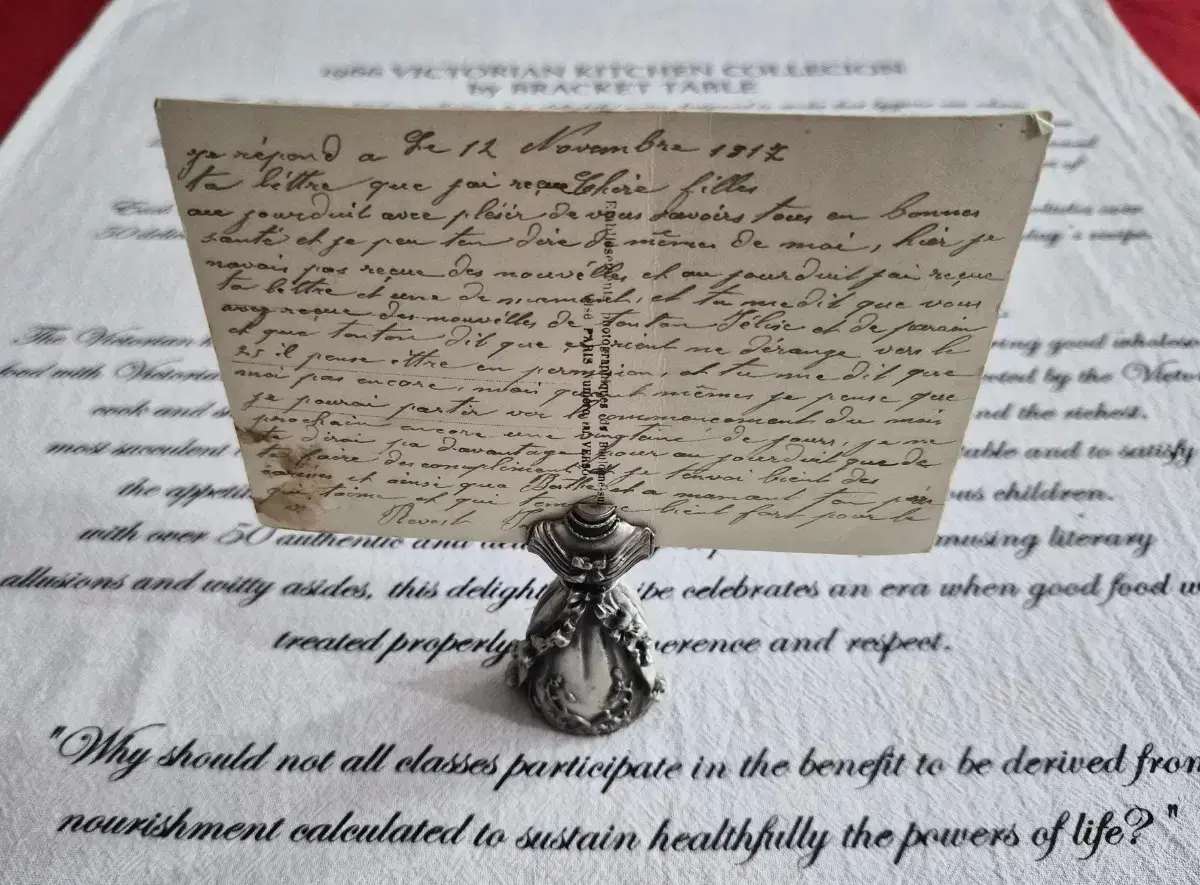 1966 VICTORIAN KITCHEN COLLECION
by BRACKET TABLE
Le 12 Novembre 1917
je répond a
ta léttre que jai reçue Chère filles
au jourduit avec plésir de vous savoirs tous en bonnes
santé et je peu ten dire de mêmes de moi, hier je
navais pas reçue des nouvélles et au jourduit jai reçue
ta lettre et une de et tu me dit que vous
avez reçue des nouvélles de tonton Félise et de parain
et que tonton dit que si rient ne dérange vers le
25 il pense ettre en permision, et tu me dit que
moi pas encore, mais quant mêmes je pense que
je pourai partir ver le commencement du mois
prochain encore une vingtaine de jours, je ne
te dirai pa davantage pour au jourduit que de
te faire des compliments et je tenvoi bient des
et ainsi que Berthe et a mamant ton père
qui taime et qui bient fort pour la
vie
Etablissements photographiques de Boulogne-sur-
PARIS
The Victorian
ring good wholeso
food with Victoria
cted by the Victor
cook and
nd the richest.
most succulent
table and to satisfy
the appetit
us children.
with over 50 authentic and
musing literary
allusions and witty asides, this delight
ipe celebrates an era when good food w
treated properly
verence and respect.
"Why should not all classes participate in the benefit to be derived from
nourishment calculated to sustain healthfully the powers of life?"